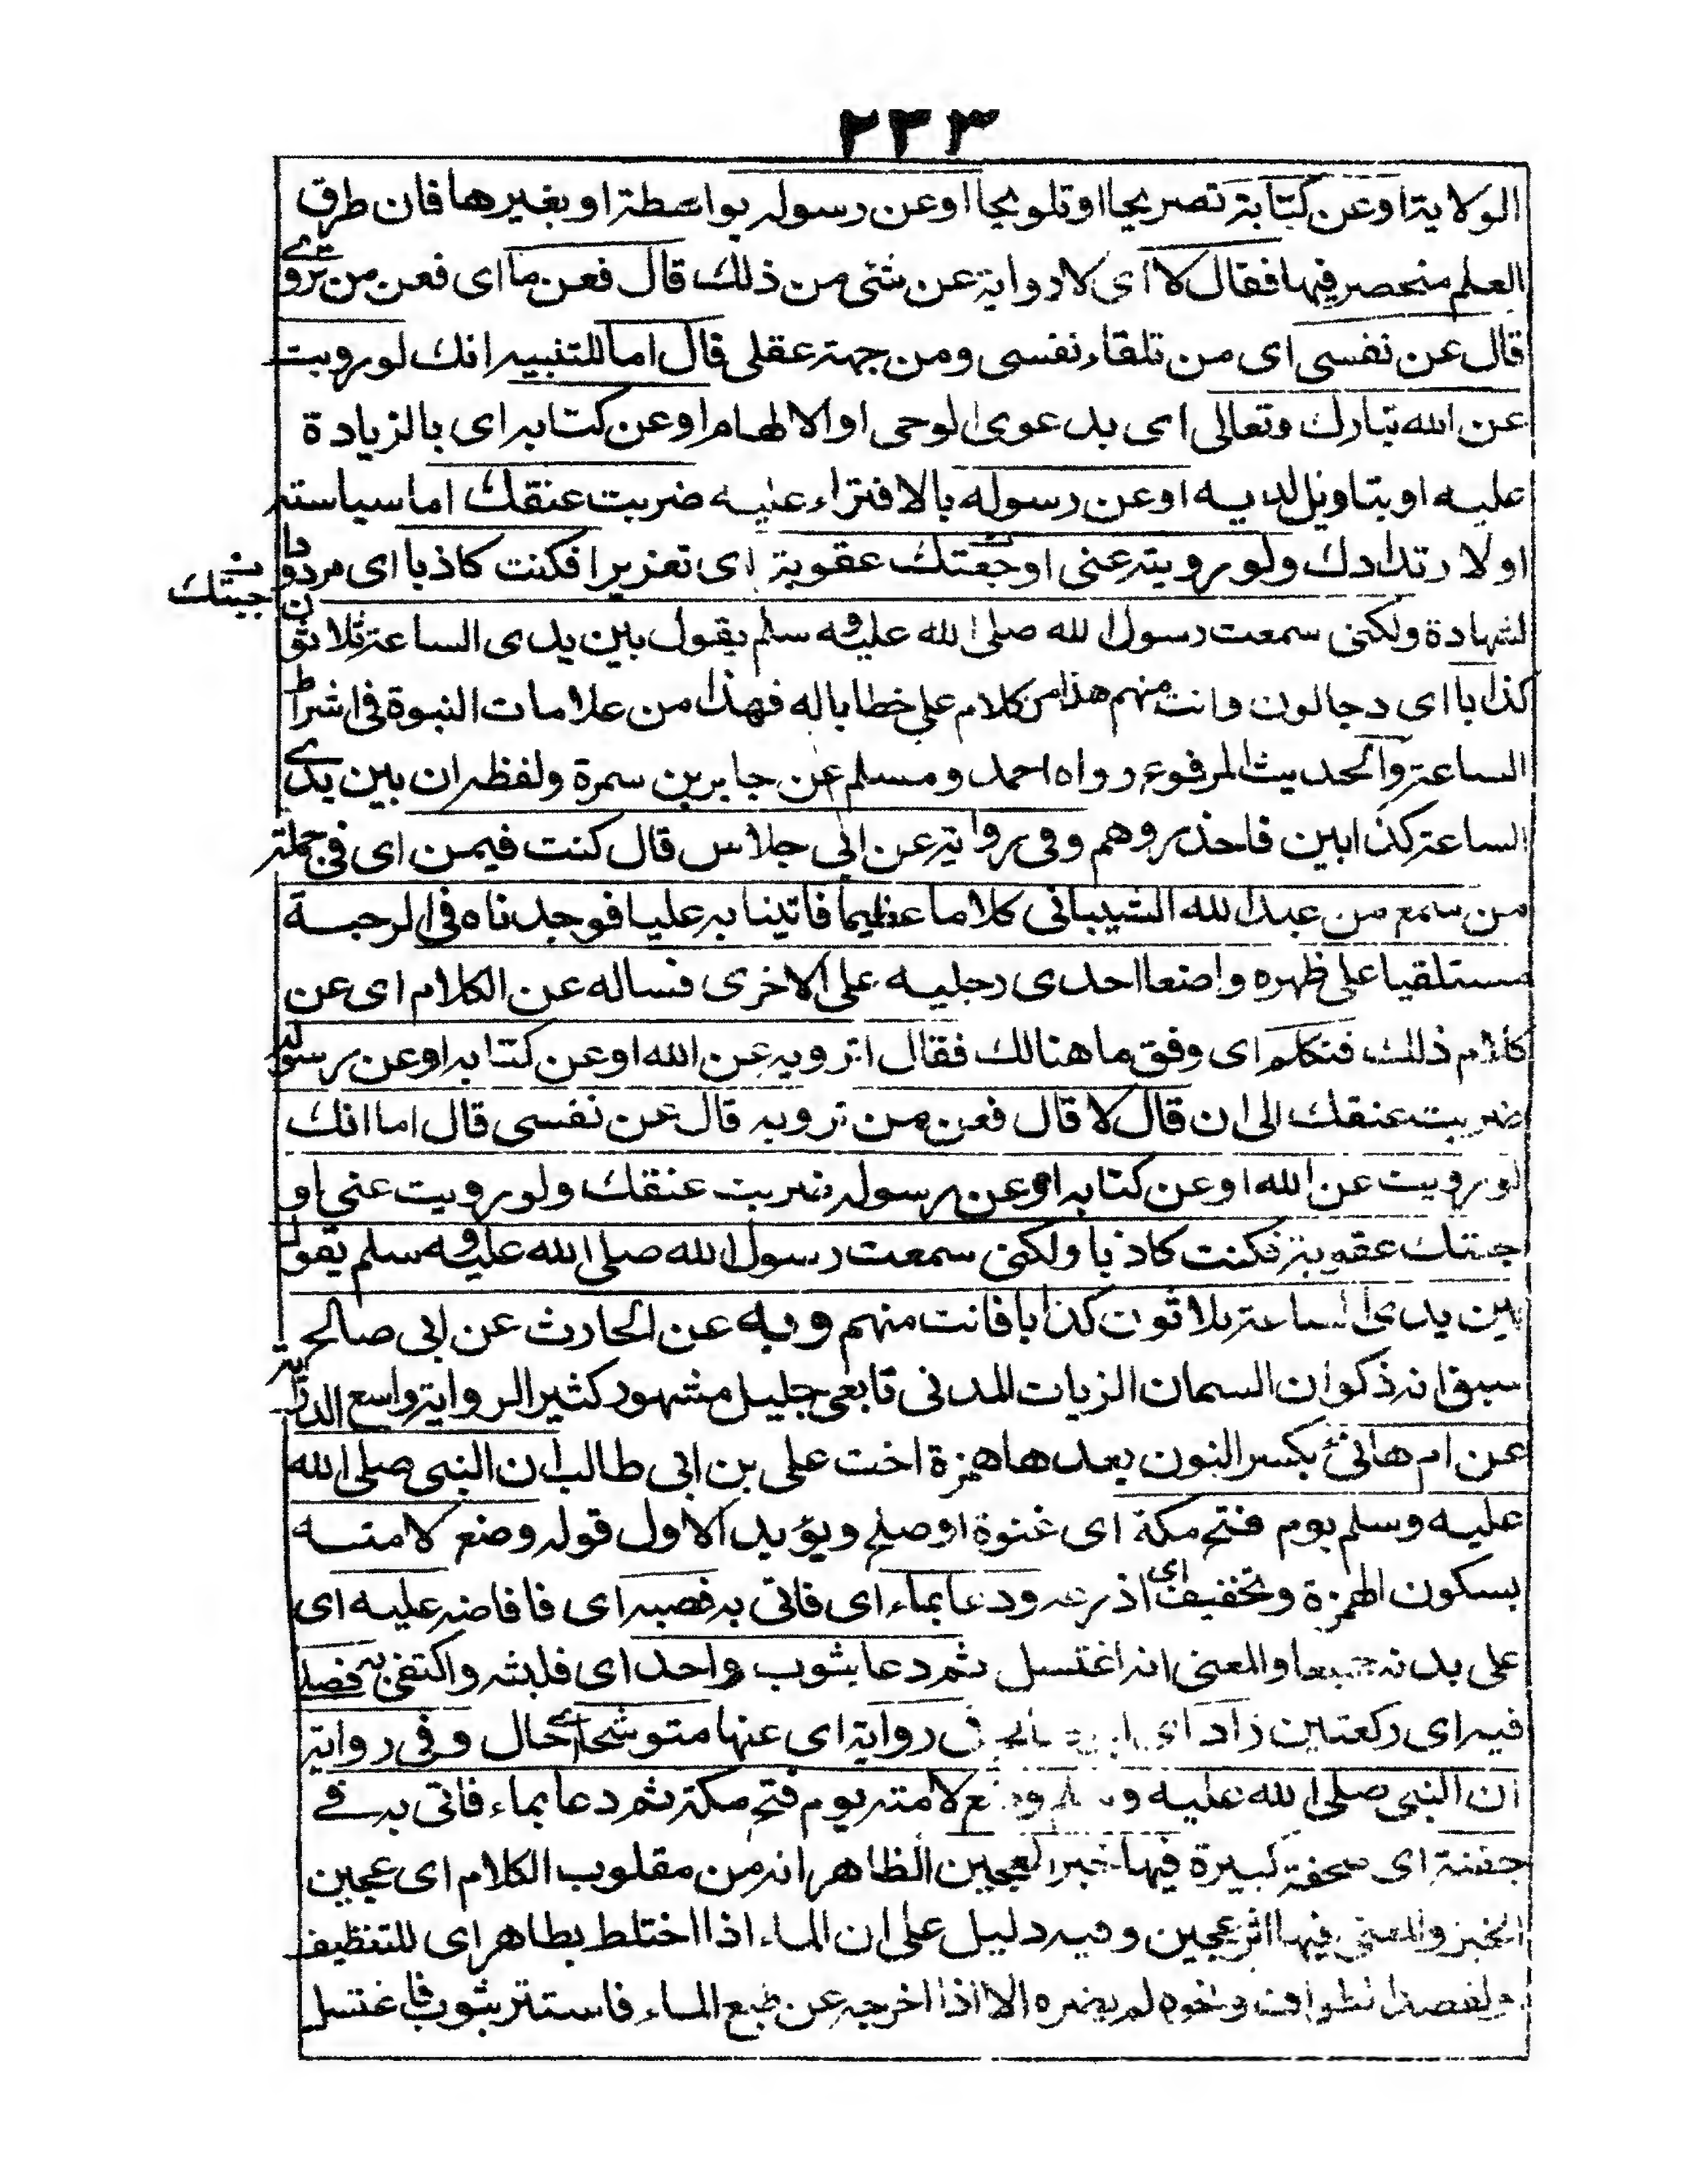 ٢٣٣
الولاية اوعن كتابة تصريحا اوتلويحا اوعن رسوله بواسطة اوبغيرها فان طرق
العلم منحصر فيها فقال لا اى لا رواية عن شئ من ذلك قال فعن ما اى فعن من تروى
قال عن نفسى اى من تلقاء نفسى ومن جهة عقلى قال اما للتنبيه انك لورويت
عن الله تبارك وتعالى اى بدعوى الوحى او الالهام اوعن كتابه اى بالزيادة
عليه او بتاويل لديه اوعن رسوله بالافتراء عليه ضربت عنقك اما سياسته
اولارتدادك ولو رويته عنى اوجعتك عقوبة اى تعزيرا فكنت كاذبا اى مردودا
جيئتك
لشهادة ولكنى سمعت رسول الله صلى الله عليه وسلم يقول بين يدى الساعة ثلاثون
كذابا اى دجالون وانت منهم هذا من كلام على خطابا له فهذا من علامات النبوة فى اشراط
الساعة والحديث المرفوع رواه احمد ومسلم عن جابر بن سمرة ولفظه ان بين يدى
الساعة كذابين فاحذروهم وفى رواية عن ابى جلاس قال كنت فيمن اى فى جملة
من سمع من عبد الله الشيبانى كلاما عظيما فاتينا به عليا فوجدناه فى الرحبة
مستلقيا على ظهره واضعا احدى رجليه على الاخرى فساله عن الكلام اى عن
كلام ذلك فتكلم اى وفق ما هنالك فقال اترويه عن الله اوعن كتابه اوعن رسوله
ضربت عنقك الى ان قال لا قال فعن من ترويه قال عن نفسى قال اما انك
لو رويت عن الله اوعن كتابه اوعن رسوله ضربت عنقك ولو رويت عنى او
جئتك عقوبة فكنت كاذبا ولكنى سمعت رسول الله صلى الله عليه وسلم يقول
بين يدى الساعة ثلاثون كذابا فانت منهم وبه عن الحارث عن ابى صالح
سبق انه ذكوان السمان الزيات المدنى تابعى جليل مشهور كثير الرواية واسع الدراية
عن ام هانئ بكسر النون بعدها همزة اخت على بن ابى طالب ان النبى صلى الله
عليه وسلم يوم فتح مكة اى عنوة اوصلح ويؤيد الاول قوله وضع لامته
بسكون الهمزة وتخفيف اى درعه ودعا بماء اى فاتى به فصبه اى فافاضه عليه اى
على بدنه جميعا والمعنى انه اغتسل ثم دعا بثوب واحد اى فلبسه واكتفى به فصلى
فيه اى ركعتين زاد فى رواية اى عنها متوشحا اى حال وفى رواية
ان النبى صلى الله عليه وسلم وضع لامته يوم فتح مكة ثم دعا بماء فاتى به فى
جفنة اى صحفة كبيرة فيها خبز العجين الظاهر انه من مقلوب الكلام اى عجين
الخبز والمعنى فيها اثر عجين وفيه دليل على ان الماء اذا اختلط بطاهر اى للتنظيف
ونحوه لم يضره الا اذا اخرجه عن طبع الماء فاستتر بثوب فاغتسل